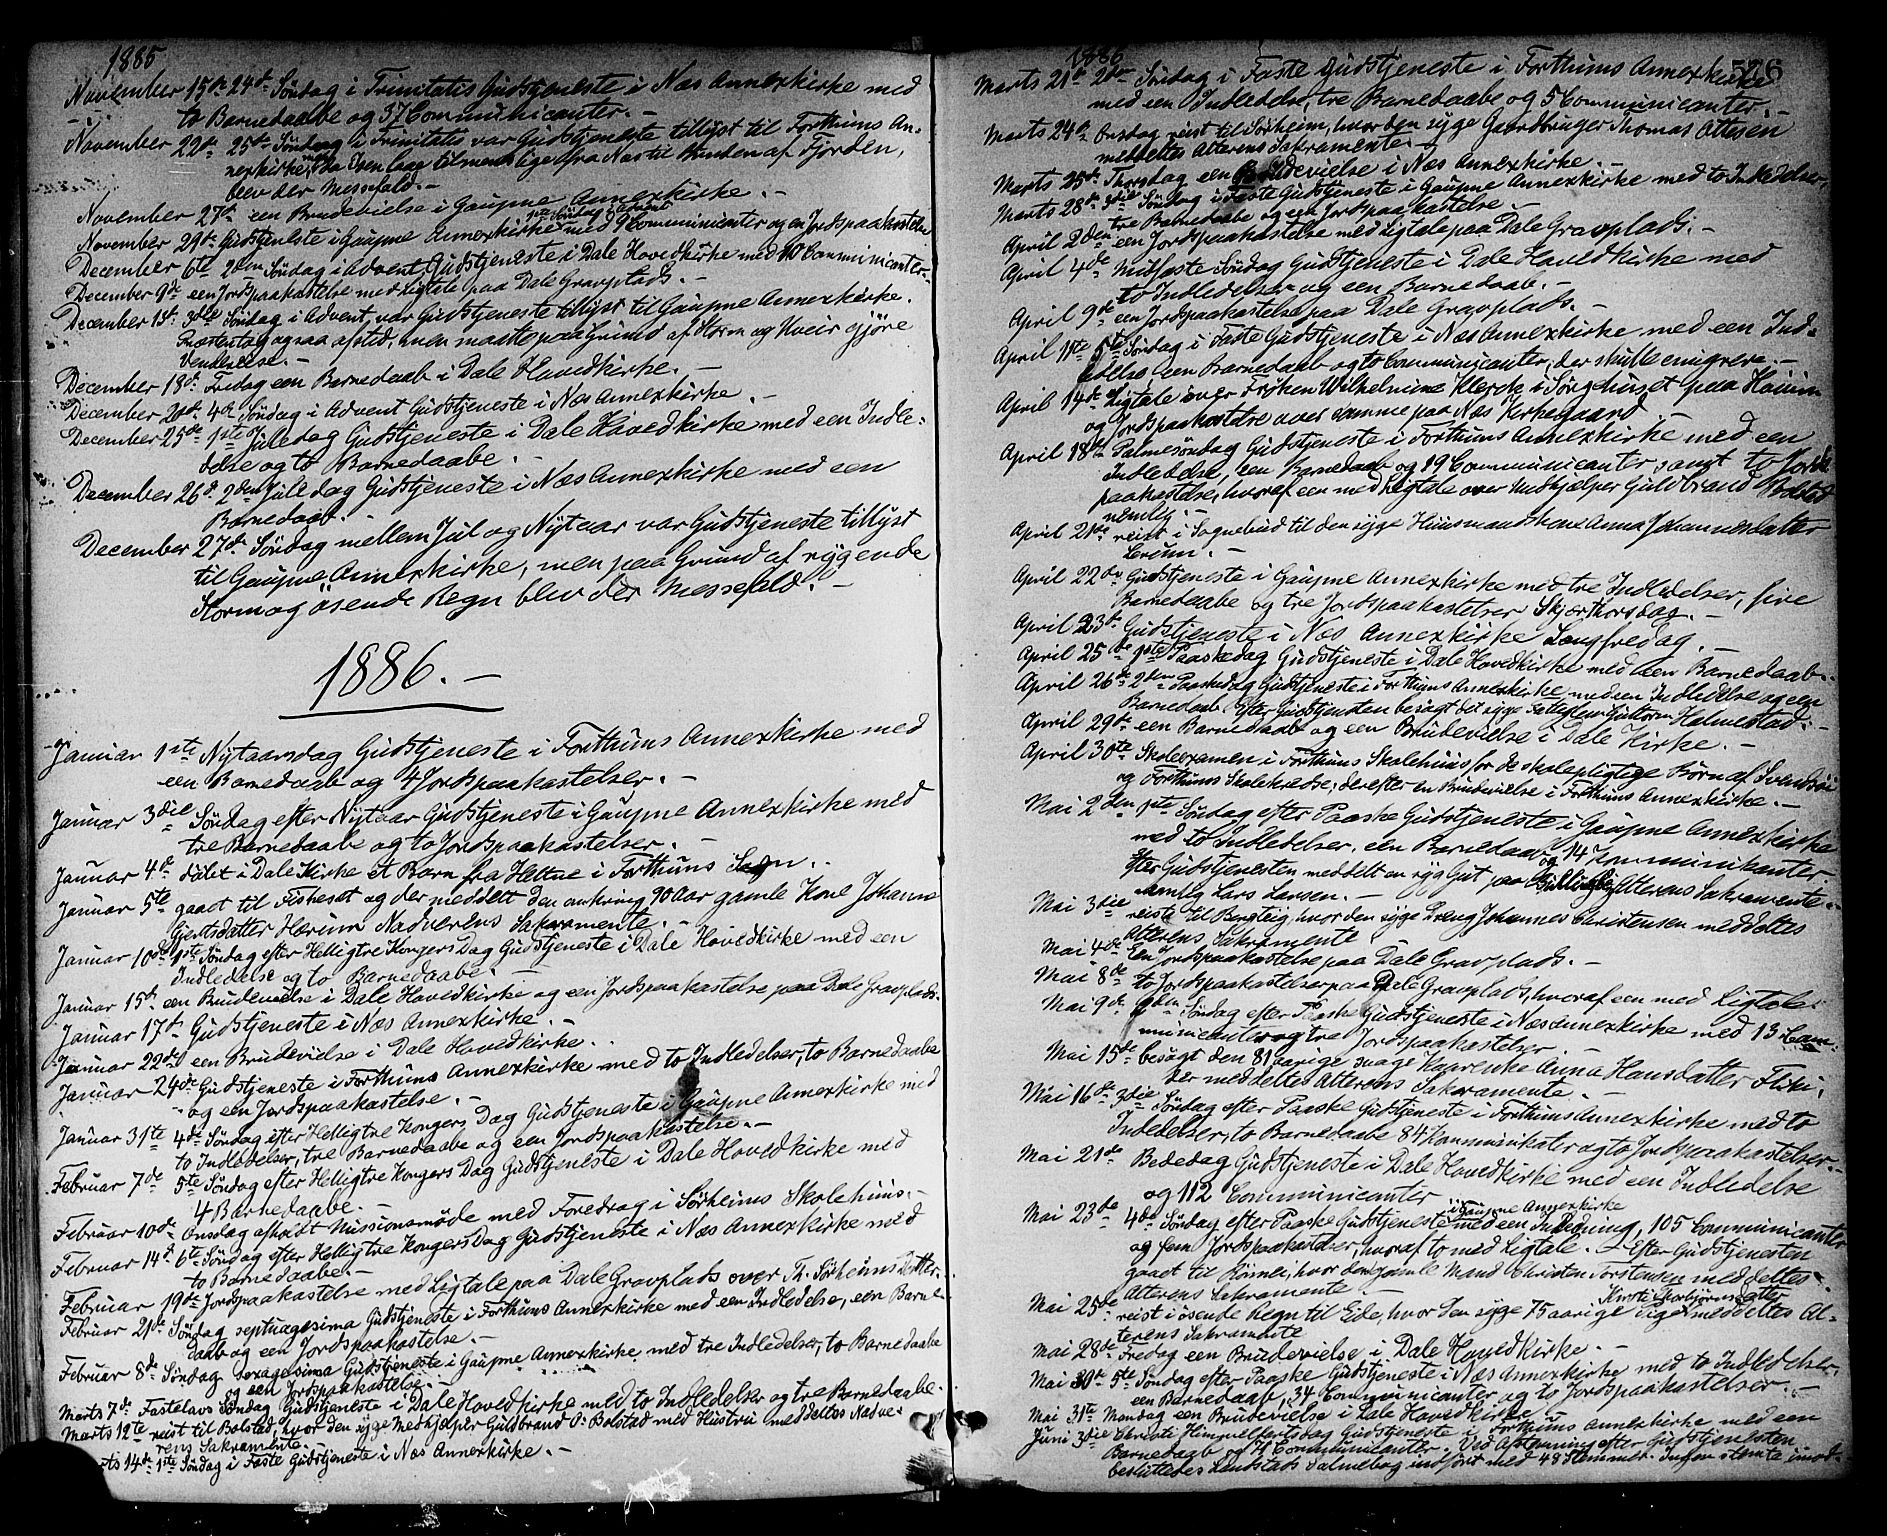 1885
November 15de 24de Søndag i Trinitatis Gudstjeneste i Næs Annexkirke med
to Barnedaabe og 37 Communicanter. –
November 22de 25de Søndag i Trinitatis var Gudstjeneste tillyst til Forthuns An-
nexkirke, men da Isen laae fra Næs til Bunden af Fjorden,
blev der Messefald. –
November 27de een Brudevielse i Gaupne Annexkirke. –
1ste Søndag i Advent
November 29de Gudstjeneste i Gaupne Annexkirke med 9 Communicanter og en Jordspaakastelse
December 6te 2den Søndag i Advent Gudstjeneste i Dale Hovedkirke med 10 Communicanter. –
December 9de een Jordspaakastelse med Ligtale paa Dale Gravplads. –
December 13de 3die Søndag i Advent var Gudstjeneste tillyst til Gaupne Annexkirke.
Præsten tog ogsaa afsted, men maatte paa Grund af Storm og Uveir gjøre
Vendereise. –
December 18de Fredag een Barnedaab i Dale Hovedkirke. –
December 20de 4de Søndag i Advent Gudstjeneste i Næs Annexkirke. –
December 25de 1ste Juledag Gudstjeneste i Dale Hovedkirke med een Indle-
delse og to Barnedaabe. –
December 26de 2den Juledag Gudstjeneste i Næs Annexkirke med een
Barnedaab. –
December 27de Søndag mellem Jul og Nytaar var Gudstjeneste tillyst
til Gaupne Annexkirke, men paa Grund af rygende
Storm og øsende Regn blev der Messefald. –
1886. –
Januar 1ste Nytaarsdag Gudstjeneste i Forthuns Annexkirke med
een Barnedaab og 4 Jordspaakastelser. –
Januar 3die Søndag efter Nytaar Gudstjeneste i Gaupne Annexkirke med
tre Barnedaabe og to Jordspaakastelser. –
Januar 4de døbt i Dale Kirke et Barn fra Heltne i Forthuns Sogn. –
Januar 5te gaaet til Fiskeset og der meddelt den omkring 90 Aar gamle Kone Johanne
Gjertsdatter Hærum Nadverens Sakramente. –
Januar 10de 1ste Søndag efter Helligtre Kongers Dag Gudstjeneste i Dale Hovedkirke med een
Indledelse og to Barnedaabe. –
Januar 15de een Brudevielse i Dale Hovedkirke og een Jordspaakastelse paa Dale Gravplads.
Januar 17de Gudstjeneste i Næs Annexkirke. –
Januar 22de een Brudevielse i Dale Hovedkirke. –
Januar 24de Gudstjeneste i Forthuns Annexkirke med to Indledelser, to Barnedaabe
og een Jordspaakastelse. –
Januar 31te 4de Søndag efter Helligtre Kongers Dag Gudstjeneste i Gaupne Annexkirke med
to Indledelser, tre Barnedaabe og een Jordspaakastelse. –
Februar 7de 5te Søndag efter Helligtre Kongers Dag Gudstjeneste i Dale Hovedkirke med
4 Barnedaabe. –
Februar 10de Onsdag afholdt Missionsmøde med Foredrag i Sørheims Skolehuus. –
Februar 14de 6te Søndag efter Helligtre Kongers Dag Gudstjeneste i Næs Annexkirke med
to Barnedaabe. –
Februar 19de Jordspaakastelse med Ligtale paa Dale Gravplads over Th. Sørheims Datter.
Februar 21de Søndag septuagesima Gudstjeneste i Forthuns Annexkirke med een Indledelse, een Barne-
daab og een Jordspaakastelse. –
Februar 8de Søndag sexagesima Gudstjeneste i Gaupne Annexkirke med tre Indledelser, to Barnedaabe
og een Jordspaakastelse. –
Marts 7de Fastelavns Søndag Gudstjeneste i Dale Hovedkirke med to Indledelser og tre Barnedaabe.
Marts 12te reist til Bolstad, hvor den syge Medhjælper Guldbrand O. Bolstad med Hustru meddeltes Nadve-
rens Sakramente. –
Marts 14de 1ste Søndag i Faste Gudstjeneste i Næs Annexkirke. –
1886
576
Marts 21de 2den Søndag i Faste Gudstjeneste i Forthuns Annexkirke
med een Indledelse, tre Barnedaabe og 5 Communicanter. –
Marts 24de Onsdag reist til Sørheim, hvor den syge Gaardbruger Thomas Ottesen
meddeltes Alterens Sakramente. –
Marts 25de Thorsdag een Brudevielse i Næs Annexkirke. –
Marts 28de 3die Søndag i Faste Gudstjeneste i Gaupne Annexkirke med to Indledelser,
tre Barnedaabe og een Jordspaakastelse. –
April 2den een Jordspaakastelse med Ligtale paa Dale Gravplads. –
April 4de Midfaste Søndag Gudstjeneste i Dale Hovedkirke med
to Indledelser og een Barnedaab. –
April 9de een Jordspaakastelse paa Dale Gravplads. –
April 11te 5te Søndag i Faste Gudstjeneste i Næs Annexkirke med een Ind-
ledelse, een Barnedaab og to Communicanter, der skulle emigrere. –
April 14de Ligtale over Frøken Wilhelmine Klerck i Sørgehuset paa
og Jordspaakastelse over samme paa Næs Kirkegaard
April 18de Palmesøndag Gudstjeneste i Forthuns Annexkirke med een
Indledelse, een Barnedaab og 19 Communicanter, samt to Jords-
paakastelser, hvoraf een med Ligtale over Medhjælper Guldbrand Bolstad
nemlig. –
April 21de reist i Sognebud til den syge Huusmandskone Anna Johannesdatter
. –
April 22de Gudstjeneste i Gaupne Annexkirke med tre Indledelser, fire
Barnedaabe og tre Jordspaakastelser Skjærthorsdag. –
April 23de Gudstjeneste i Næs Annexkirke Langfredag. –
April 25de 1ste Paaskedag Gudstjeneste i Dale Hovedkirke med een Barnedaab. –
April 26de 2den Paaskedag Gudstjeneste i Forthuns Annexkirke, med een Indledelse og een
Barnedaab. Efter Gudstjenesten besøgt det syge Guttorm Halmestad. –
April 29de een Barnedaab og een Brudevielse i Dale Kirke. –
April 30te Skoleexamen i Forthuns Skolehuus for de skolepligtige Børn af
og Forthuns Skolekredse; derefter en Brudevielse i Forthuns Annexkirke. –
Mai 2den 1ste Søndag efter Paaske Gudstjeneste i Gaupne Annexkirke
med to Indledelser, een Barnedaab og 14 Kommunikanter.
Efter Gudstjenesten meddelt en syg Gut paa Alterens Sakramente. –
nemlig Lars Larsen. –
Mai 3die reist til Bergteig, hvor den syge Dreng Johannes Christensen meddeltes
Alterens Sakramente.
Mai 4de Een Jordspaakastelse paa Dale Gravplads. –
Mai 8de to Jordspaakastelser paa Dale Gravplads, hvoraf een med Ligtale.
Mai 9de 2den Søndag efter Paaske Gudstjeneste i Næs Annexkirke med 13 Com-
municanter og tre Jordspaakastelser –
Mai 15de besøgt den 81 aarige svage Anna Hansdatter Flikki,
der meddeltes Alterens Sakramente. –
Mai 16de 3die Søndag efter Paaske Gudstjeneste i Forthuns Annexkirke med to
Indledelser, to Barnedaabe 84 Kommunikanter og to Jordspaakastelser. –
Mai 21de Bededag Gudstjeneste i Dale Hovedkirke med een Indledelse
og 112 Communicanter
i Gaupne Annexkirke
Mai 23de 4de Søndag efter Paaske Gudstjeneste med een Indledning, 105 Communicanter
og fem Jordspaakastelser, hvoraf to med Ligtale. – Efter Gudstjenesten
gaaet til Rømei, hvor den gamle Mand Christen Torstensen meddeltes
Alterens Sakramente. –
Kirsti Thorbjørnsdatter
Mai 25de reist i øsende Regn til Eide, hvor den syge 75 aarige Pige meddeltes Al-
terens Sakramente
Mai 28de Fredag een Brudevielse i Dale Hovedkirke. –
Mai 30te 5te Søndag efter Paaske Gudstjeneste i Næs Annexkirke med to Indledelser,
een Barnedaab, 34 Communicanter og to Jordspaakastelser. –
Mai 31te Mandag een Brudevielse i Dale Hovedkirke –
Juni 3die Christi Himmelfartsdag Gudstjeneste i Forthuns Annexkirke med een
Barnedaab og Communicanter. Ved Afstemning efter Gudstjenesten
besluttedes Landstads Salmebog indført med 48 Stemmer. Ingen stemte imod. –